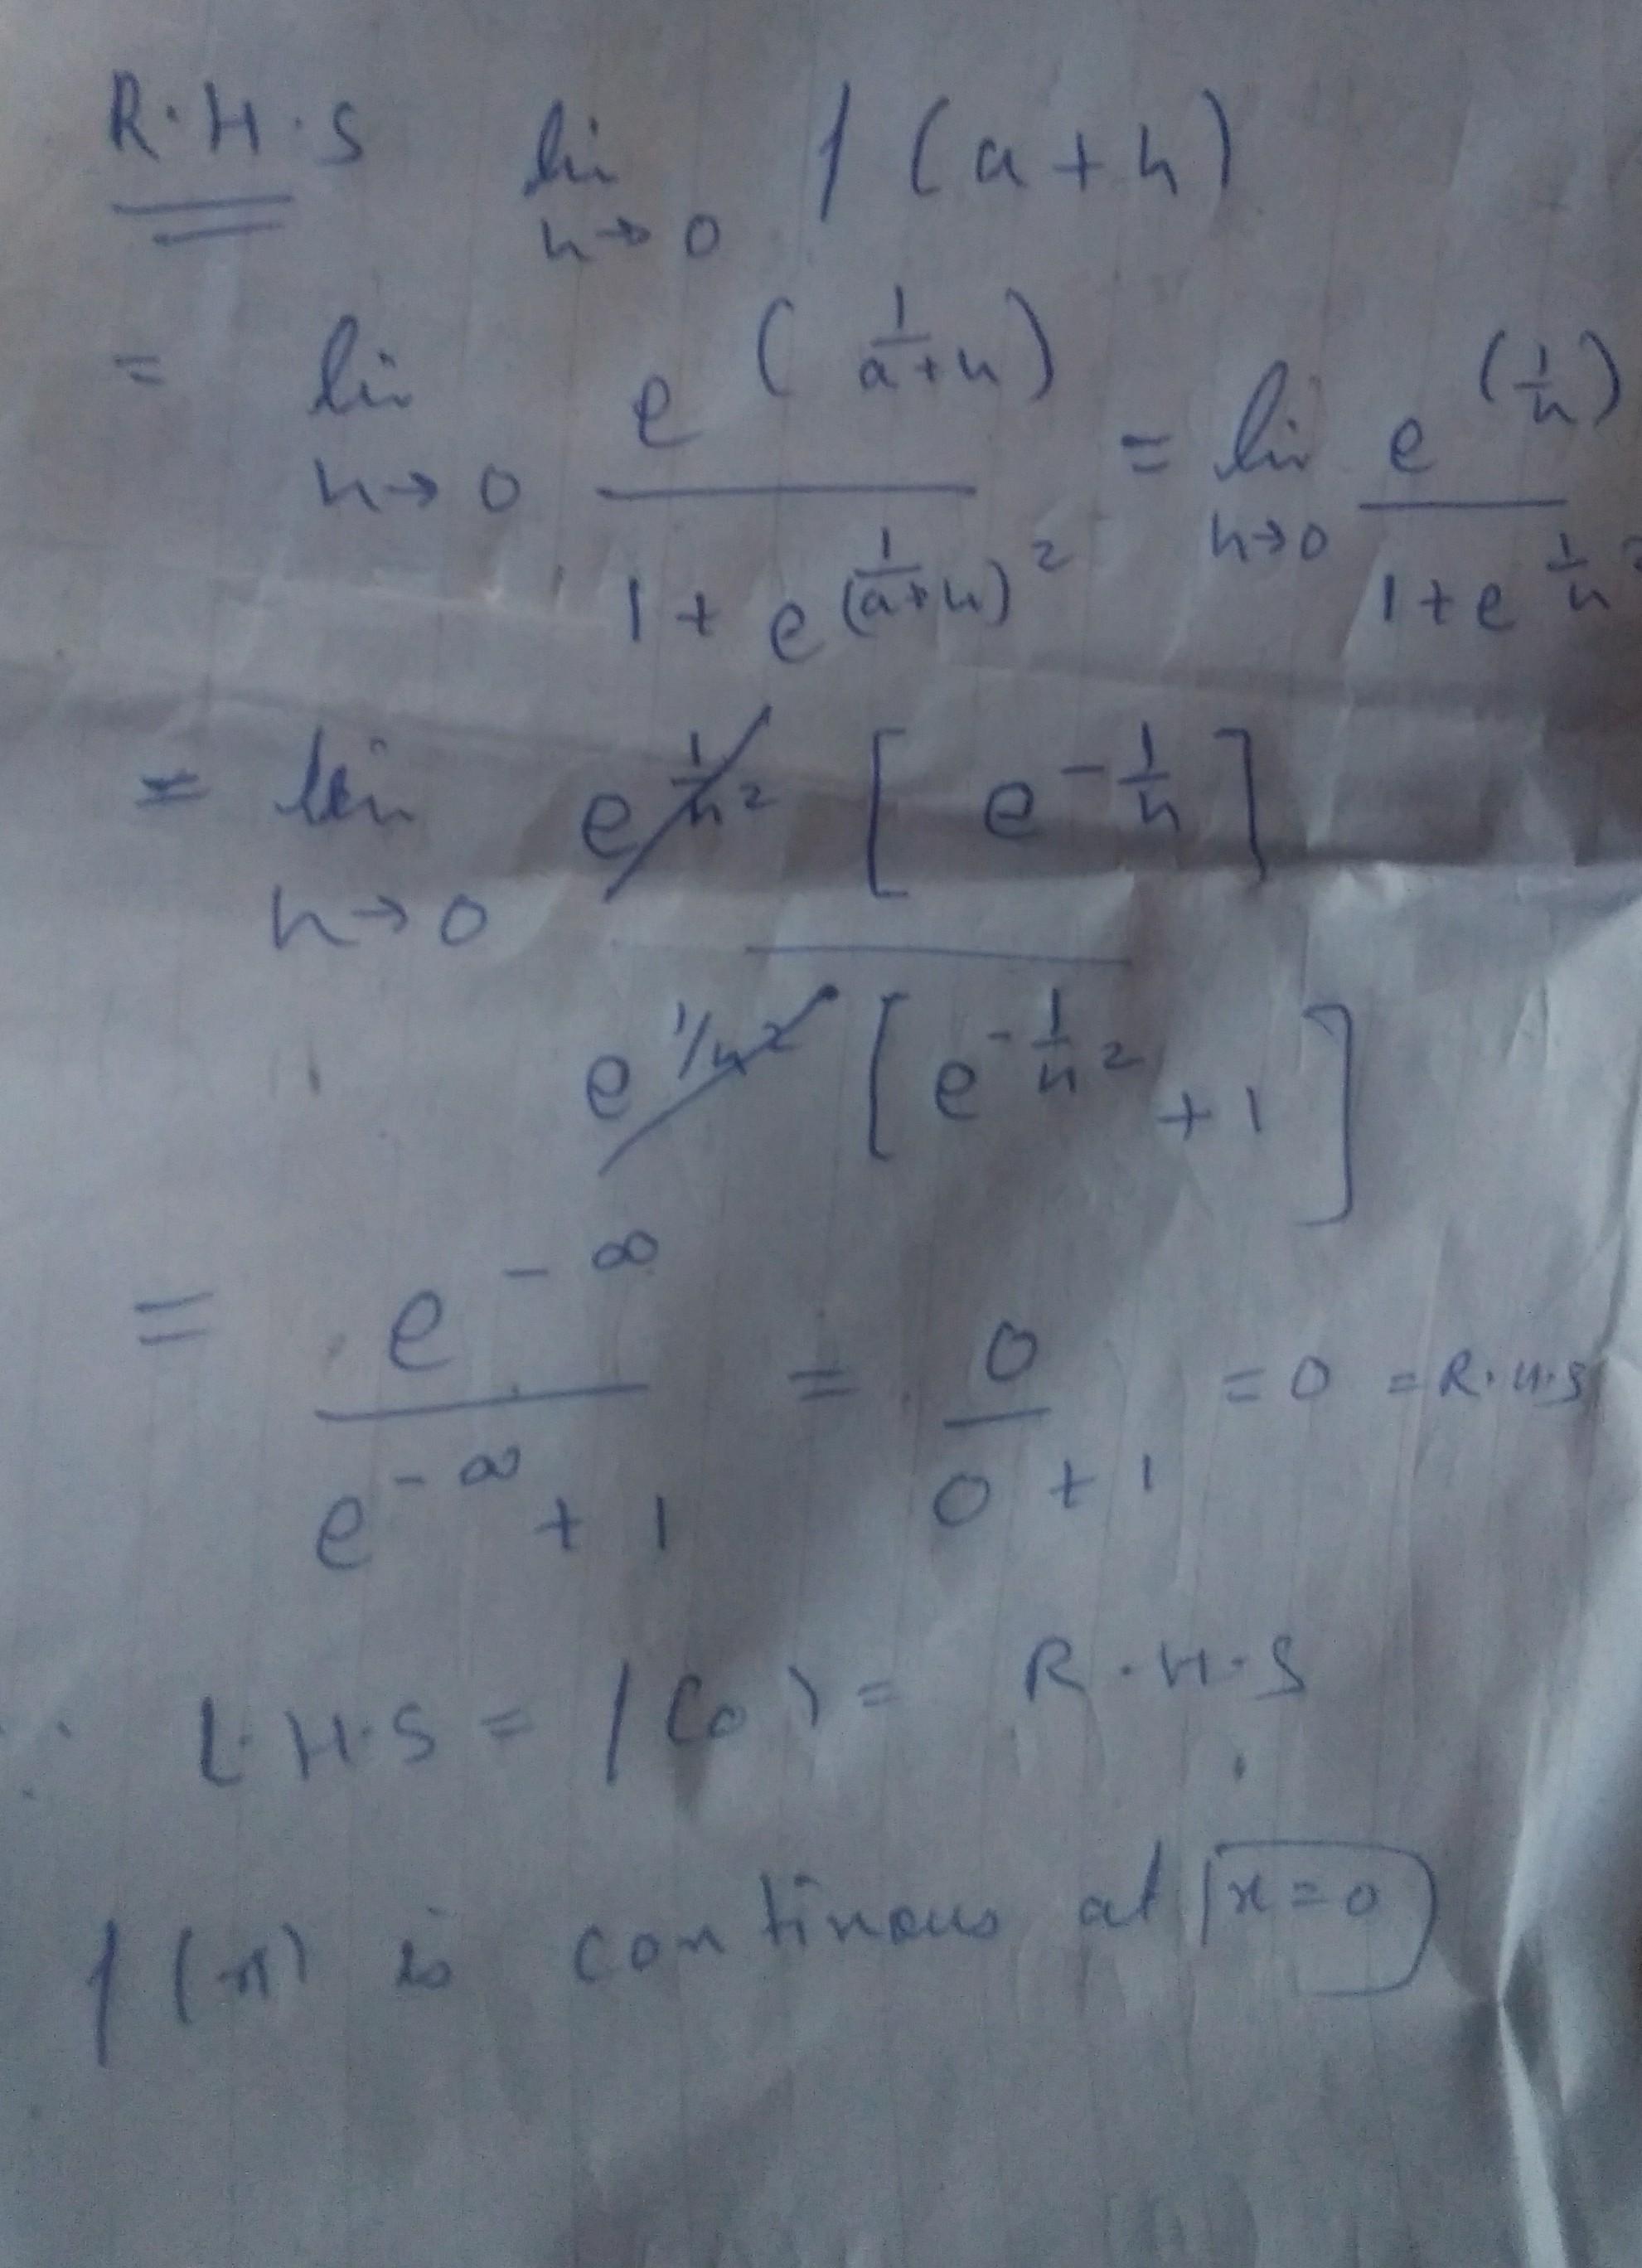 R.H.S lim h→0 f (a+h)
= lim h→0 e^(1/(a+h)) / (1 + e^(1/(a+h))^2) = lim h→0 e^(1/h) / (1+e^(1/h^2))
= lim h→0 e^(1/h^2) [e^(-1/h)] / e^(1/h^2) [e^(-1/h^2) + 1]
= e^(-∞) / (e^(-∞) + 1) = 0 / (0 + 1) = 0 = R.H.S
∴ L.H.S = f(0) = R.H.S
f(x) is continous at x=0